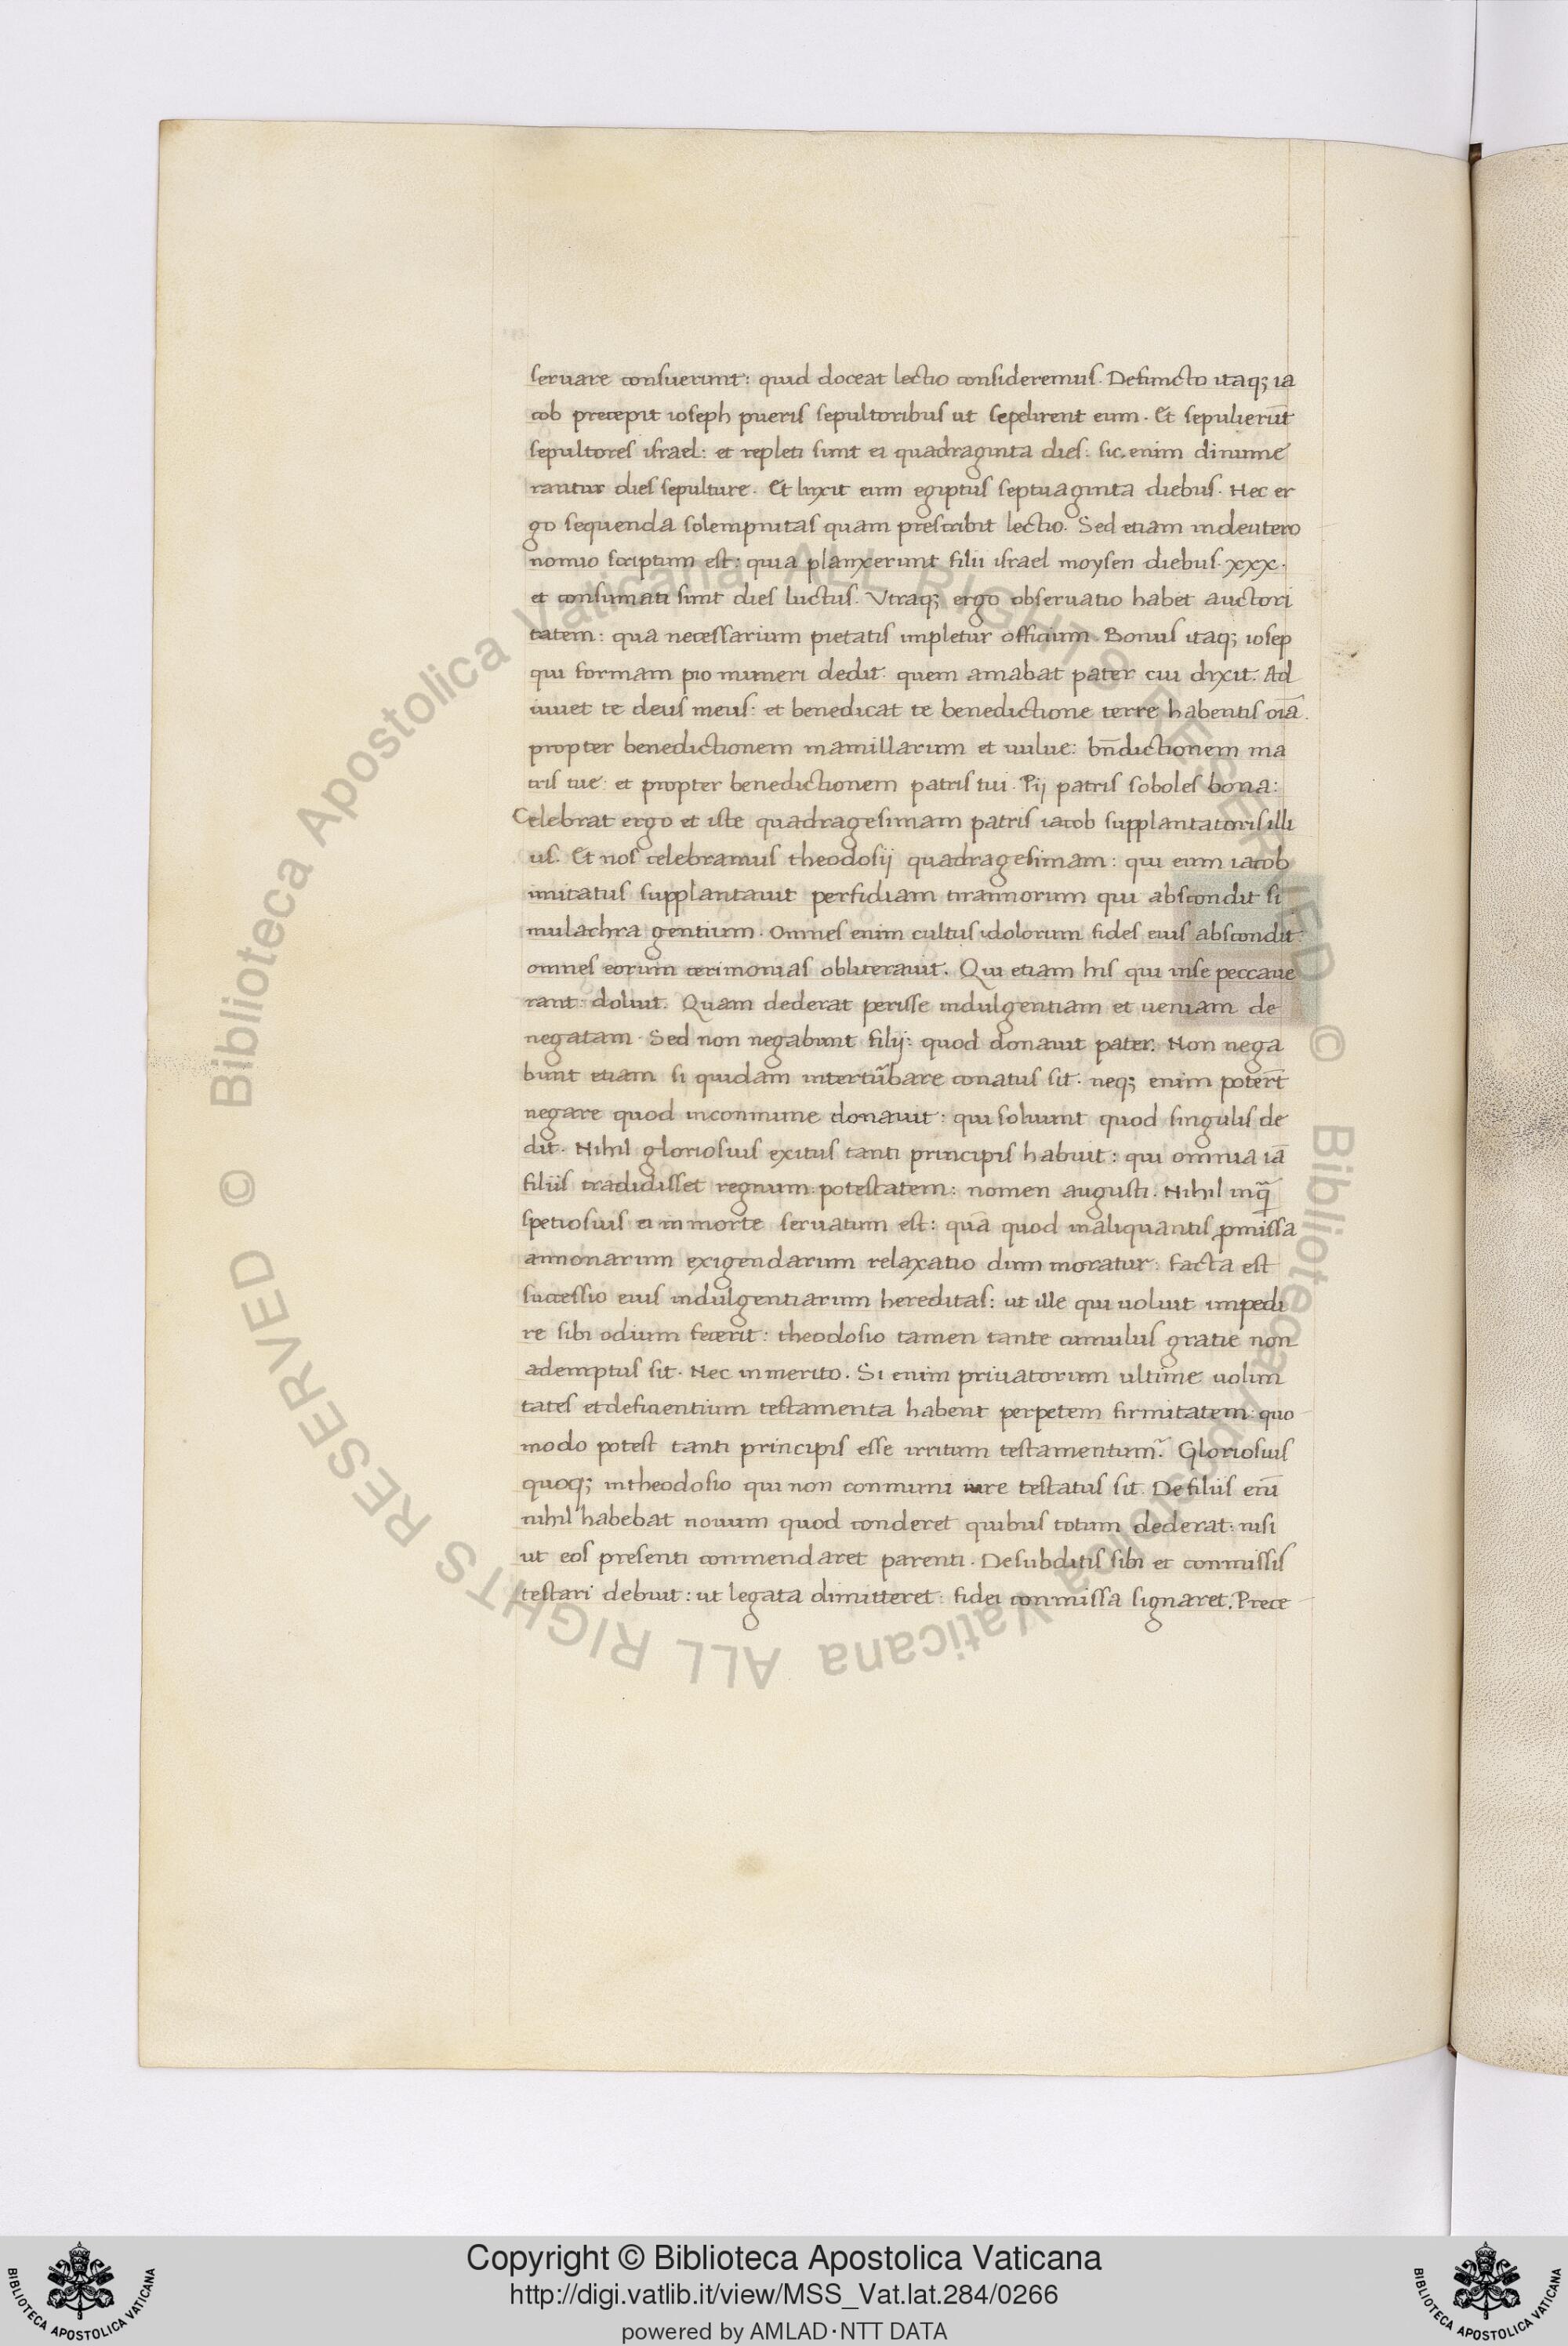 seruare consueuerunt: quid doceat lectio consideremus. Defuncto itaq; ia
cob precepit ioseph pueris sepultoribus ut sepelirent eum. Et sepulierūt
sepultores israel: et repleti sunt ei quadraginta dies: sic enim dinume
rantur dies sepulture. Et luxit eum egiptus septuaginta diebus. Hec er
go sequenda solempnitas quam prescribit lectio. Sed etiam in deutero
nomio scriptum est: quia planxerunt filii israel moysen diebus. xxx.
et consumati sunt dies luctus. Vtraq; ergo obseruatio habet auctori
tatem: qua necessarium pietatis impletur officium. Bonus itaq; iosep
qui formam pio muneri dedit. quem amabat pater cui dixit. Ad
iuuet te deus meus: et benedicat te benedictione terre habentis oīa.
propter benedictionem mamillarum et uulue: bn̄dictionem ma
tris tue: et propter benedictionem patris tui. Pij patris soboles bona:
Celebrat ergo et iste quadragesimam patris iacob supplantatoris illi
us. Et nos celebramus theodosij quadragesimam: qui eum iacob
imitatus supplantauit perfidiam tirannorum qui abscondit si
mulachra gentium. Omnes enim cultus idolorum fides eius abscondit:
omnes eorum cerimonias obliterauit. Qui etiam his qui in se peccaue
rant: doluit. Quam dederat perisse indulgentiam et ueniam de
negatam. Sed non negabunt filij: quod donauit pater. Non nega
bunt etiam si quidam intertūbare conatus sit. neq; enim poter̄t
negare quod in conmune donauit: qui soluunt quod singulis de
dit. Nihil gloriosius exitus tanti principis habuit: qui omnia iā
filiis tradidisset regnum: potestatem: nomen augusti. Nihil inq̄
spetiosius ei in morte seruatum est: quā quod in aliquantis ꝓmissa
annonarum exigendarum relaxatio dum moratur: facta est
successio eius indulgentiarum hereditas: ut ille qui uoluit impedi
re sibi odium fecerit: theodosio tamen tante cumulus gratie non
ademptus sit. Nec inmerito. Si enim priuatorum ultime uolun
tates et definentium testamenta habent perpetem firmitatem: quo
modo potest tanti principis esse irritum testamentum? Gloriosius
quoq; in theodosio qui non conmuni iure testatus sit. De filiis enī
nihil habebat nouum quod conderet quibus totum dederat: nisi
ut eos presenti conmendaret parenti. De subditis sibi et conmissis
testari debuit: ut legata dimitteret: fidei conmissa signaret. Prece
© Biblioteca Apostolica Vaticana ALL RIGHTS RESERVED © Biblioteca Apostolica Vaticana ALL RIGHTS RESERVED
Copyright © Biblioteca Apostolica Vaticana
http://digi.vatlib.it/view/MSS_Vat.lat.284/0266
powered by AMLAD·NTT DATA
BIBLIOTECA APOSTOLICA VATICANA
BIBLIOTECA APOSTOLICA VATICANA